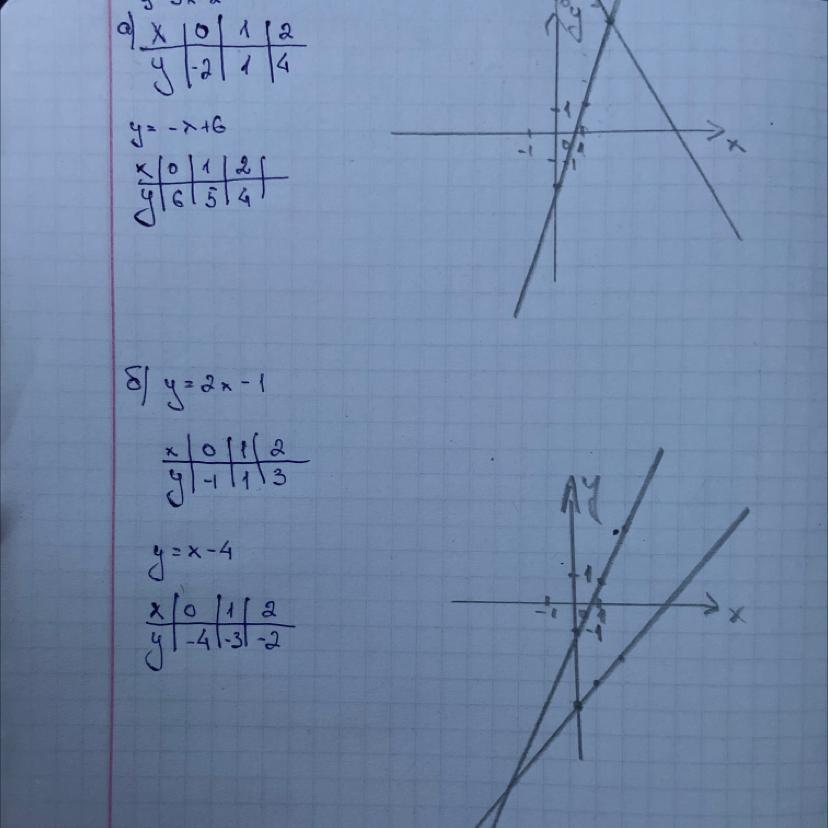 а) x 0 1 2
y -2 1 4
y = -x+6
x 0 1 2
y 6 5 4
x
1
-1
б) y = 2x - 1
x 0 1 2
y -1 1 3
y = x - 4
x 0 1 2
y -4 -3 -2
y
1
-1
-1
x